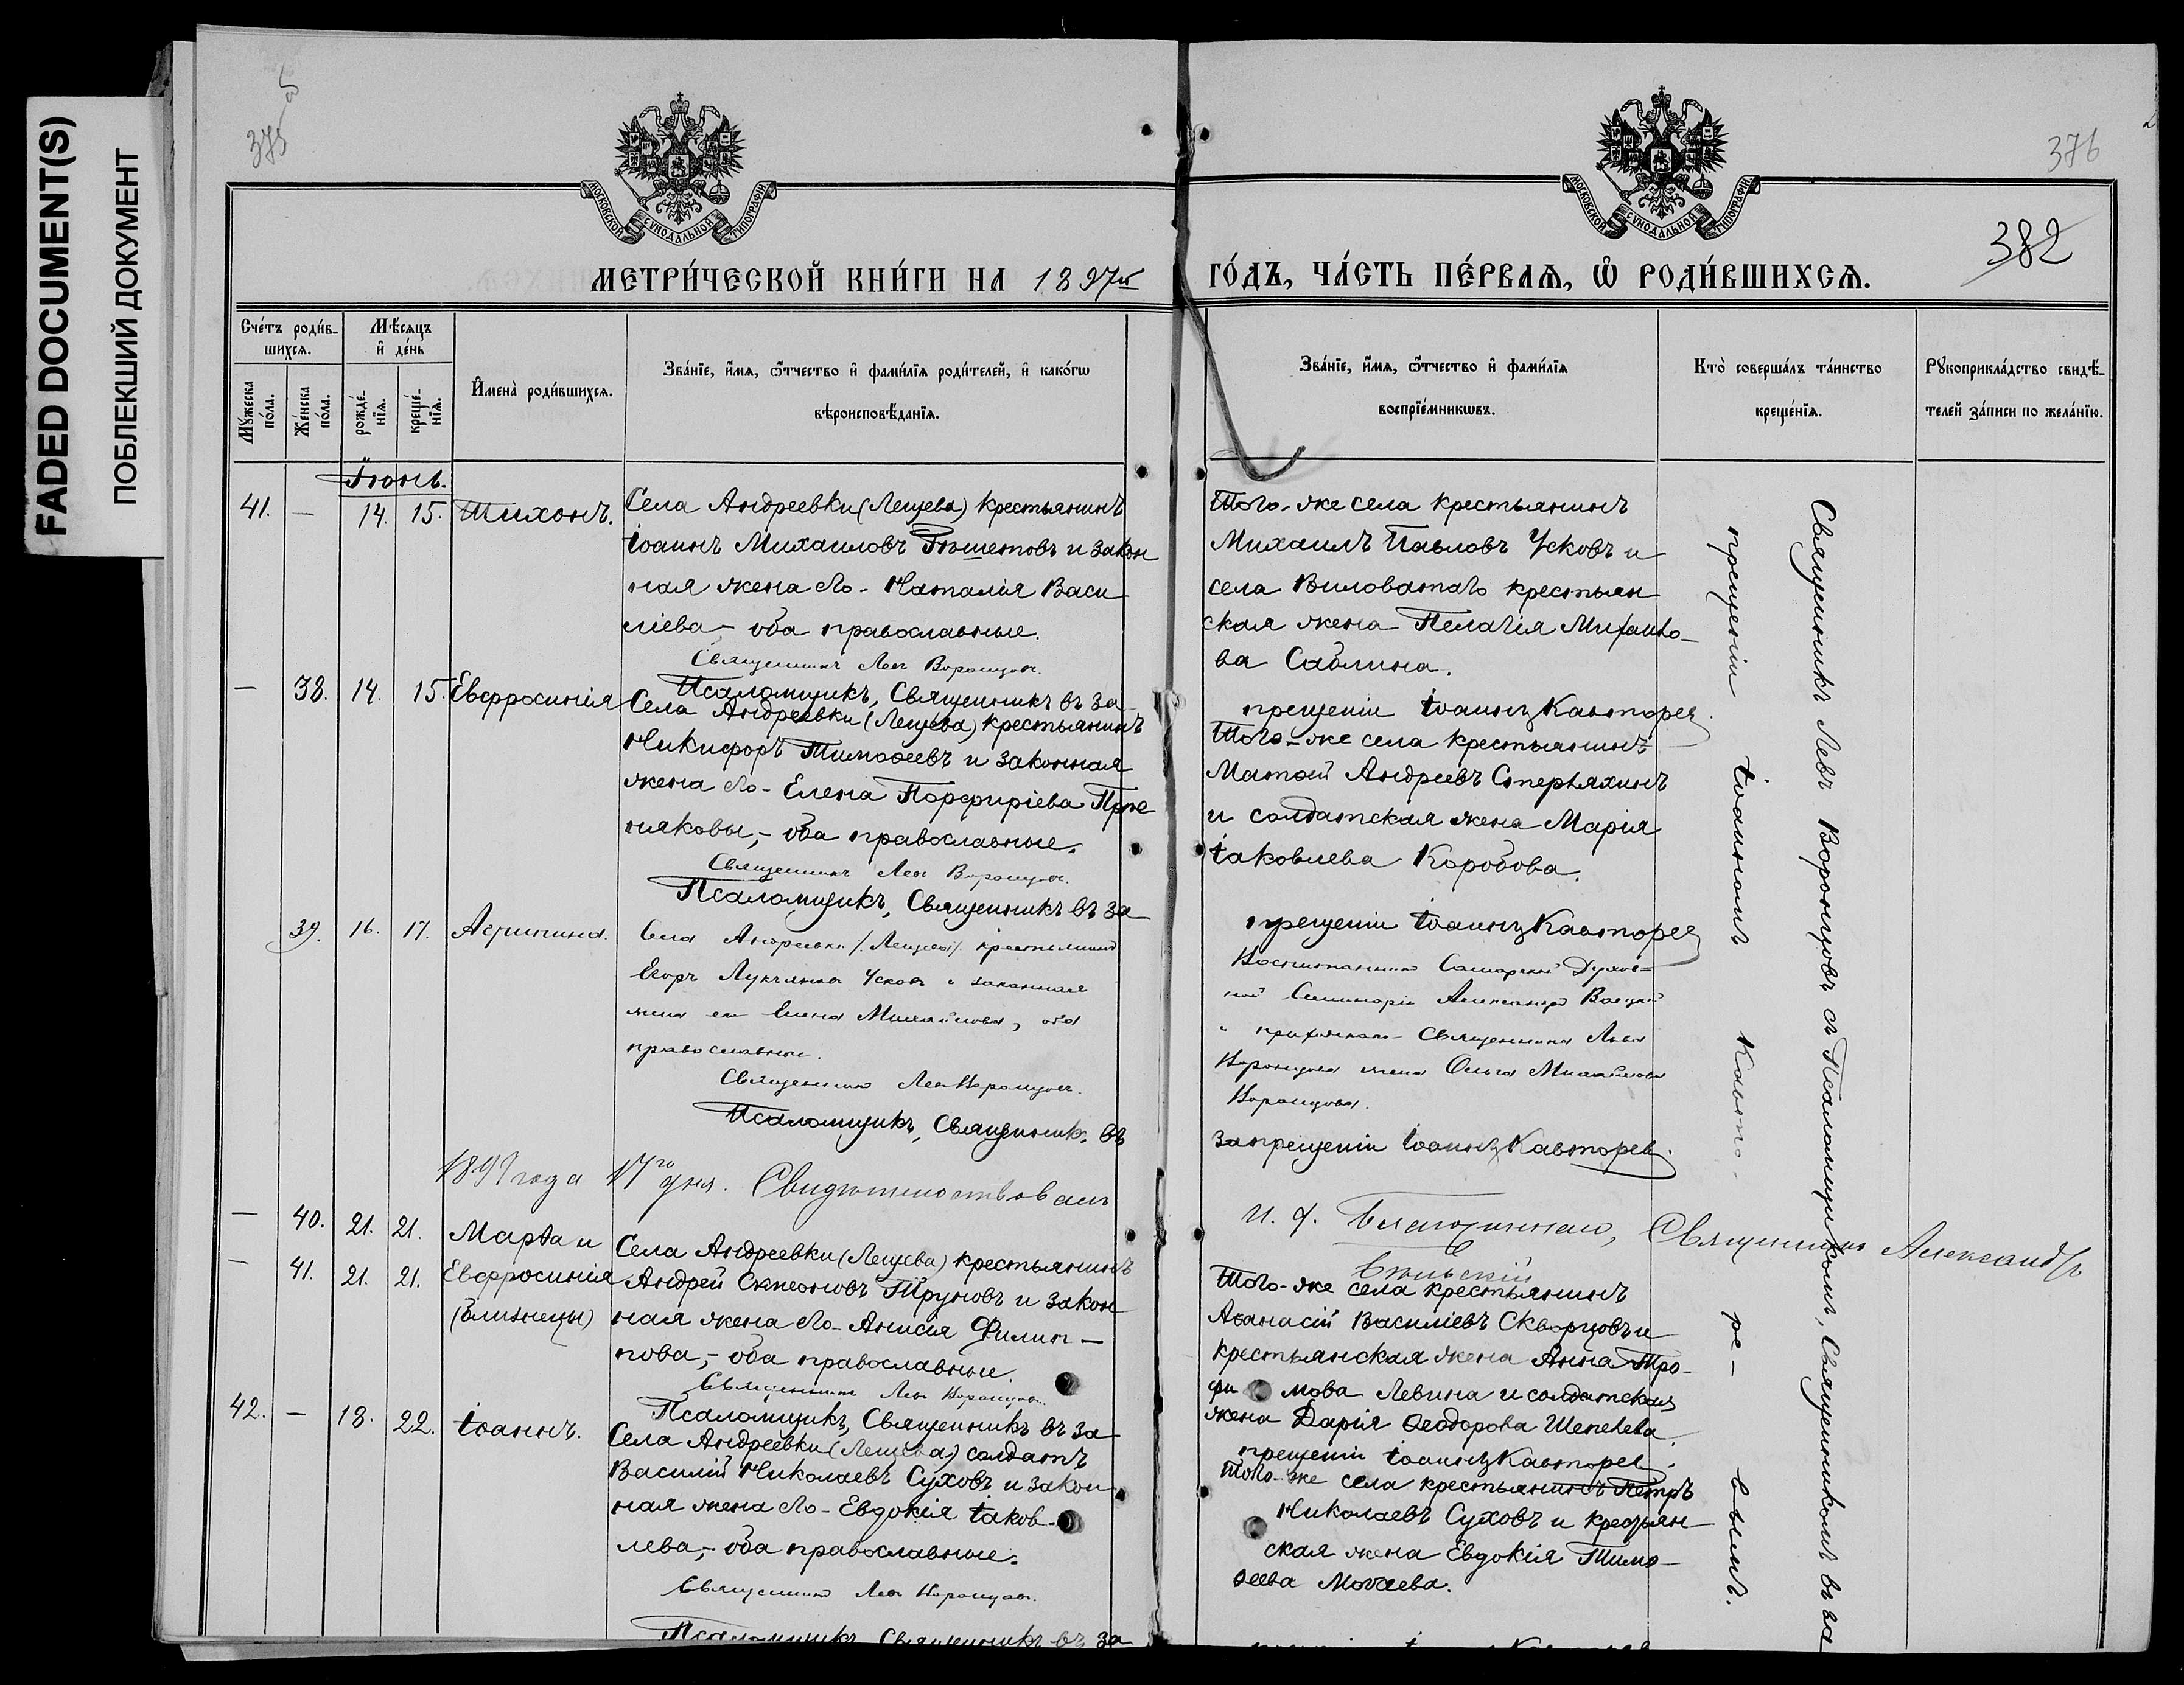 FADED DOCUMENT(S)
ПОБЛЕКШИЙ ДОКУМЕНТ
375
376
382
МОСКОВСКОЙ СѴНОДАЛЬНОЙ ТИПОГРАФІИ
МОСКОВСКОЙ СѴНОДАЛЬНОЙ ТИПОГРАФІИ
МЕТРИ́ЧЕСКОЙ КНИ́ГИ НА 1897й
ГО́ДЪ, ЧА́СТЬ ПЕ́РВАѦ, Ѡ҆ РОДИ́ВШИХСѦ.
Сче́тъ роди́в-
шихсѧ.
Мꙋ́жеска
по́ла.
Же́нска
по́ла.
Мѣ́сѧцъ
и҆ де́нь
рожде́-
нїѧ.
креще́-
нїѧ.
И҆мена̀ роди́вшихсѧ.
Зва́нїе, и҆́мѧ, ѻ҆́тчество и҆ фами́лїѧ роди́телей, и҆ како́гѡ
вѣроисповѣ́данїѧ.
Зва́нїе, и҆́мѧ, ѻ҆́тчество и҆ фами́лїѧ
воспрїе́мникѡвъ.
Кто̀ соверша́лъ та́инство
креще́нїѧ.
Рꙋкоприкла́дство свидѣ́-
телей за́писи по жела́нїю.
Іюнь.
41. — 14. 15. Тихонъ.
Села Андреевки (Лещева) крестьянинъ
Іоаннъ Михаиловъ и закон
ная жена его - Наталія Васи
ліева - оба православные.
Священникъ Левъ Воронцовъ.
Псаломщикъ, Священникъ въ за-
Того-же села крестьянинъ
Михаилъ Павловъ Усковъ и
села Виловатаго крестьян
ская жена Пелагія Михаило-
ва Саблина.
прещеніи Іоаннъ Кавторев
— 38. 14. 15. Евфросинія
Села Андреевки (Лещева) крестьянинъ
Никифоръ Тимофеевъ и законная
жена его - Елена Порфиріева
няковы, - оба православные.
Священникъ Левъ Воронцовъ.
Псаломщикъ, Священникъ въ за
Того-же села крестьянинъ
Матѳей Андреевъ Стерляхинъ
и солдатская жена Марія
Іаковлева Коробова.
прещеніи Іоаннъ Кавторев
39. 16. 17. Агрипина.
Села Андреевки /Лещева/ крестьянинъ
Егоръ Лукьяновъ Усковъ и законная
жена его Елена Михайлова, оба
православные.
Священникъ Левъ Воронцовъ.
Псаломщикъ, Священникъ въ
Воспитанникъ Самарской Духов=
ной Семинаріи Александръ
и Священника Льва
Воронцова жена Ольга Михайлова
Воронцова.
запрещеніи Іоаннъ Кавторев.
1899 года 17го дня. Свидѣтельствовалъ
и. д. Благочиннаго, Священникъ Александръ
— 40. 21. 21. Марѳа и
— 41. 21. 21. Евфросинія
(близнецы)
Села Андреевки (Лещева) крестьянинъ
Андрей Симеоновъ Труновъ и закон
ная жена его - Анисія Филип-
пова, - оба православные.
Священникъ Левъ Воронцовъ.
Псаломщикъ, Священникъ въ за
Того-же села крестьянинъ
Аѳанасій Василіевъ Скворцовъ и
крестьянская жена Анна Тро-
фимова Левина и солдатская
жена Дарія Ѳеодорова Шепелева.
прещеніи Іоаннъ Кавторев.
42. — 18. 22. Іоаннъ.
Села Андреевки (Лещева) солдатъ
Василій Николаевъ Суховъ и закон
ная жена его - Евдокія Іаков-
лева, - оба православные.
Священникъ Левъ Воронцовъ.
Псаломщикъ, Священникъ въ за
Того-же села крестьянинъ Петръ
Николаевъ Суховъ и крестьян
ская жена Евдокія Тимо-
ѳеева Могаева.
Священникъ Левъ Воронцовъ съ Псаломщикомъ, Священникомъ въ за
прещеніи Іоанномъ Кавто-ре-вымъ.